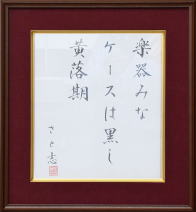 楽器みな
ケースは黒し
黄落期